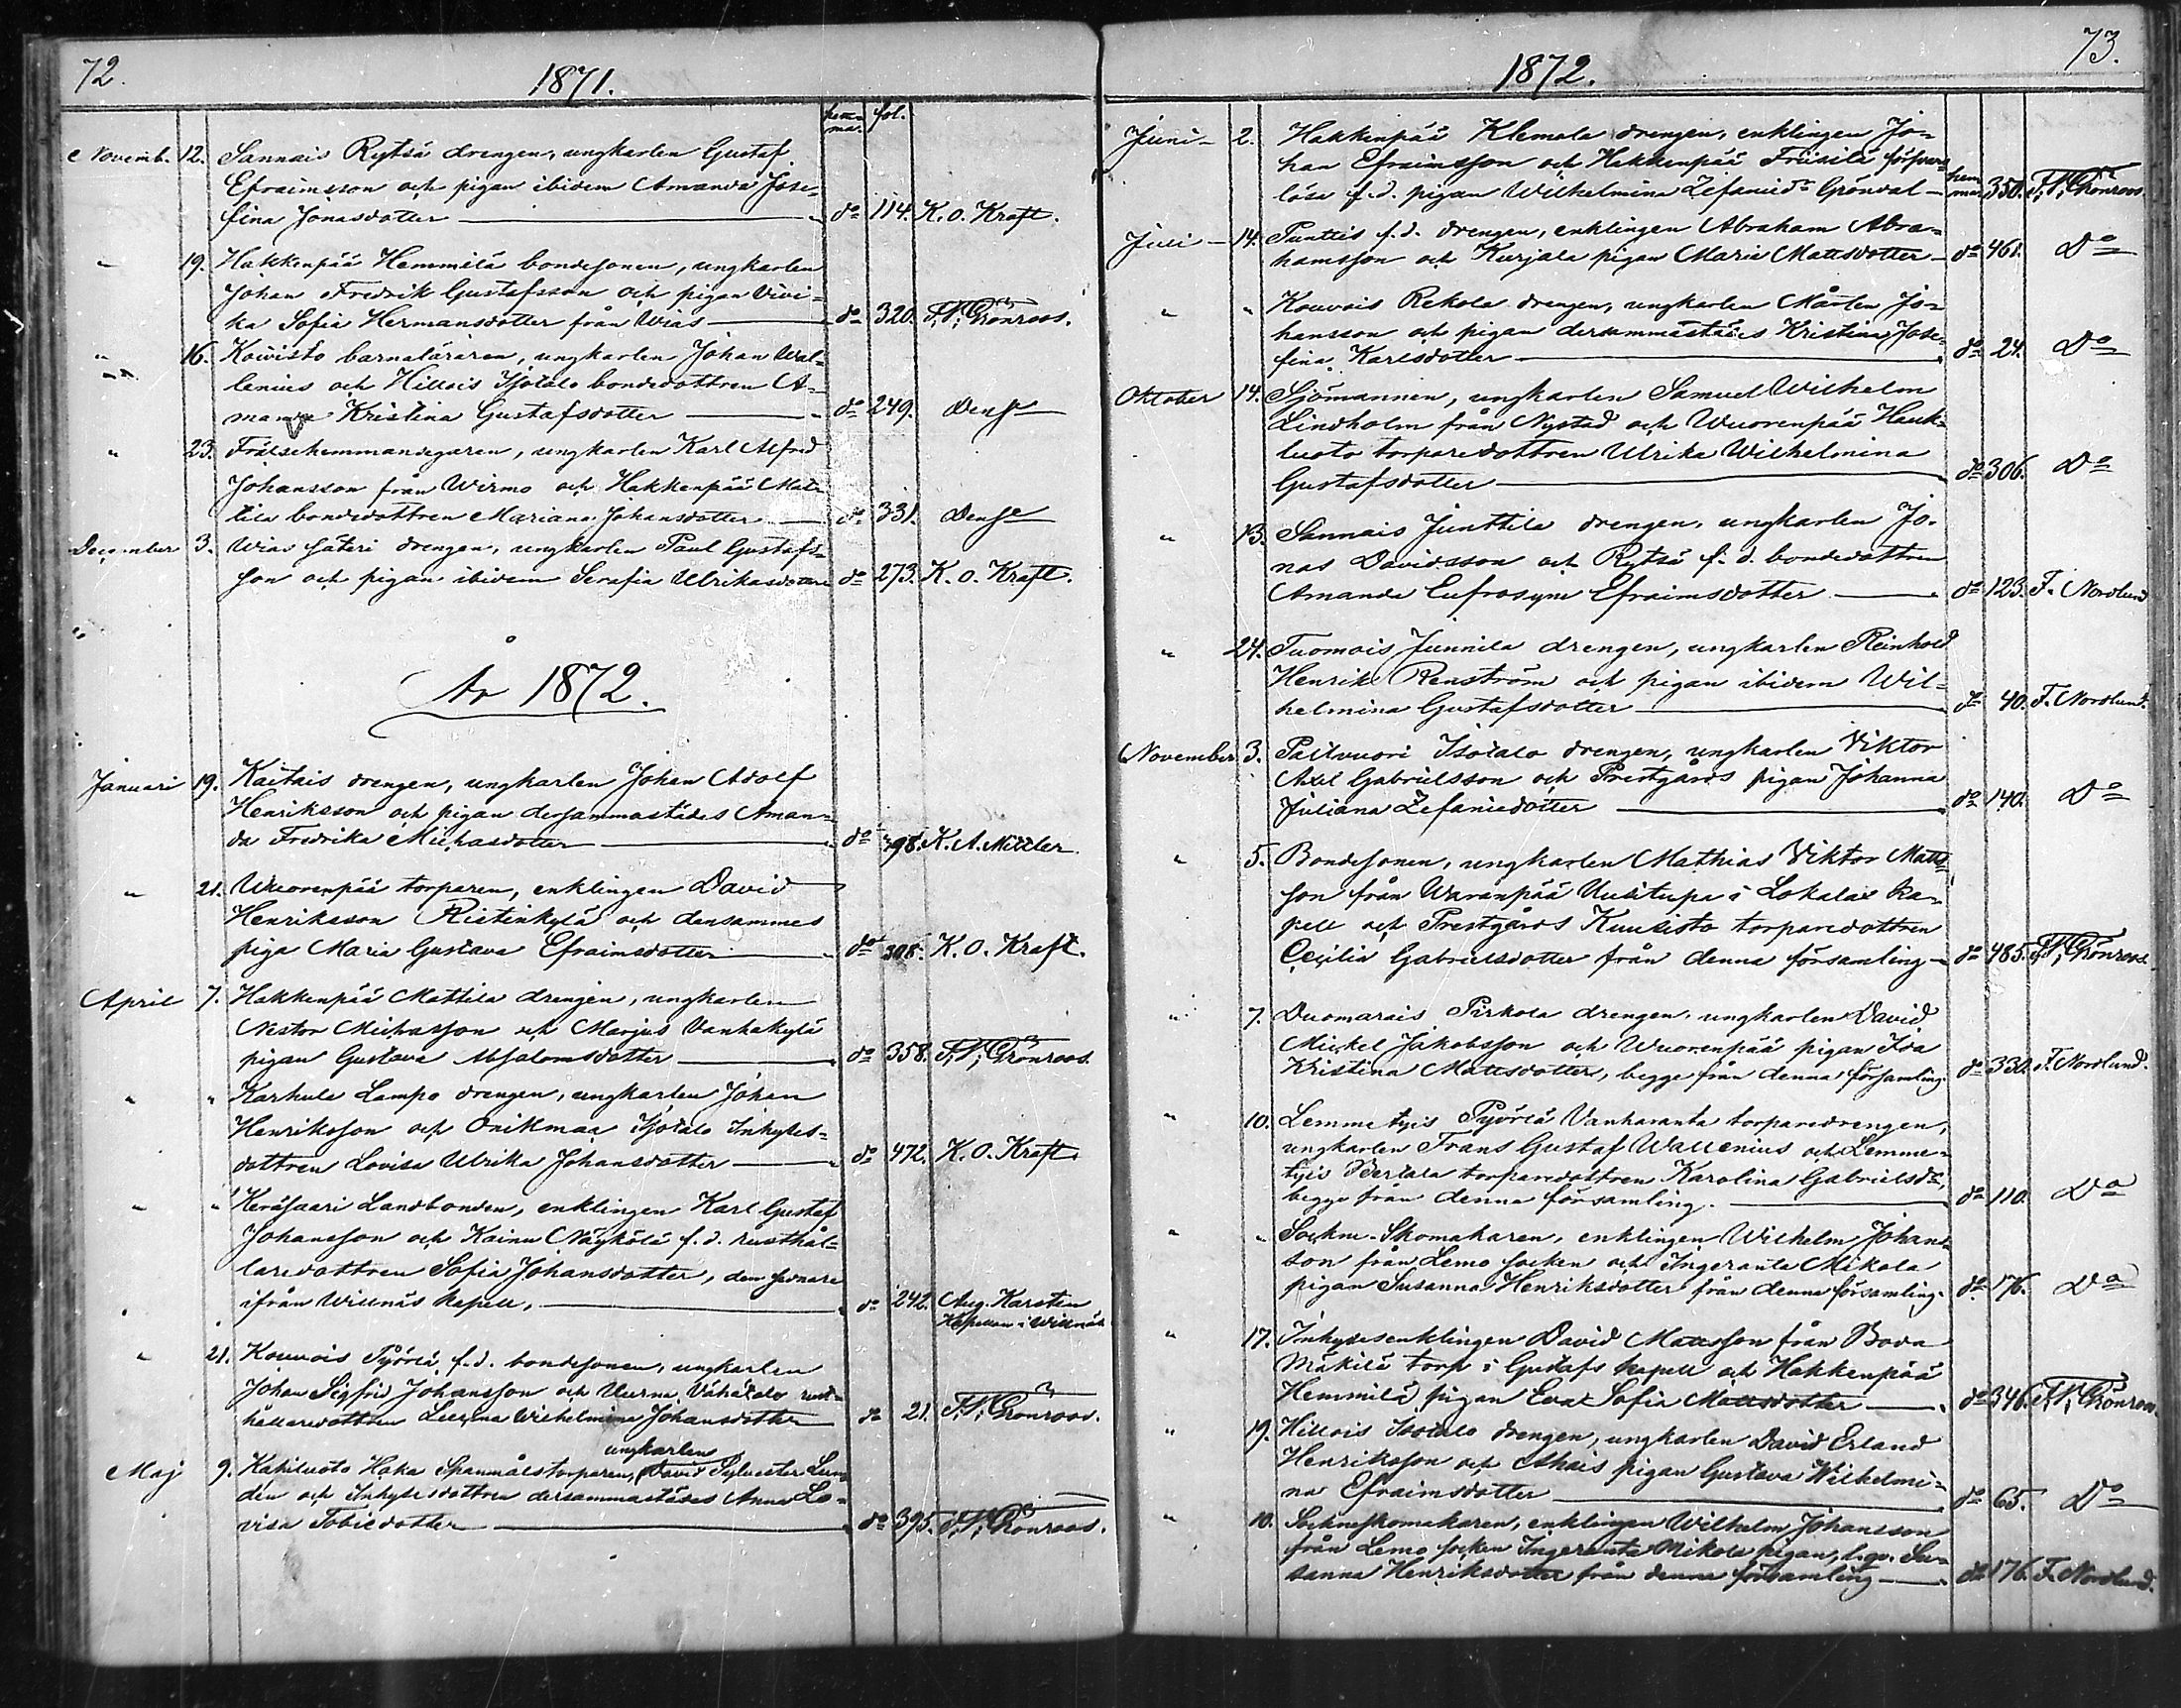 72.
1871.
hem-
ma. fol.
Novemb. 12. Sannais Rytsä drengen, ungkarlen Gustaf
Efraimsson och pigan ibidem Amanda Jose-
fina Jonasdotter do 114. K. O. Kraft.
" 19. Hakkenpää Hemmilä bondesonen, ungkarlen
Johan Fredrik Gustafsson och pigan Vivi-
ka Sofia Hermansdotter från Wias do 320. F. W. Grönroos.
" 16. Koivisto barnaläraren, ungkarlen Johan Wal-
lenius och Hillois Isotalo bondedottren A-
manda Kristina Gustafsdotter do 249. Dense
" 23. Frälsehemmansegaren, ungkarlen Karl Alfred
Johansson från Wirmo och Hakkenpää Mat-
tila bondedottren Mariana Johansdotter do 331. Dense
December 3. Wias Säteri drengen, ungkarlen Paul Gustafs-
son och pigan ibidem Serafia Ulrikasdotter do 273. K. O. Kraft.
År 1872.
Januari 19. Kaitais drengen, ungkarlen Johan Adolf
Henriksson och pigan dersammastädes Aman-
da Fredrika Michasdotter do 498. K. A. Mittler.
" 21. Wuorenpää torparen, enklingen David
Henriksson Ristinkylä och densammes
piga Maria Gustava Efraimsdotter do 308. K. O. Kraft.
April 7. Hakkenpää Mattila drengen, ungkarlen
Nestor Michasson och Marjus Vanhakylä
pigan Gustava Absalomsdotter do 358. F. W. Grönroos.
" " Karhula Lampo drengen, ungkarlen Johan
Henriksson och Onikmaa Isotalo Inhyses-
dottren Lovisa Ulrika Johansdotter do 472. K. O. Kraft.
" " Keräsaari Landbonden, enklingen Karl Gustaf
Johansson och Kainu Näykölä f. d. rusthål-
laredottren Sofia Johansdotter, den sednare
ifrån Willnäs kapell, do 242. Aug. Karsten
Kapellan i Willnäs
" 21. Kouvois Työriä f. d. bondesonen, ungkarlen
Johan Sigfrid Johansson och Uurna Vähätalo rust-
hållaredottren Leerena Wilhelmina Johansdotter do 21. F. W. Grönroos.
ungkarlen
Maj 9. Kahiluoto Haka Spanmålstorparen, David Sylvester Lun-
dén och Inhysesdottren dersammastädes Anna Lo-
visa Tobiedotter do 395. F. W. Grönroos.
1872.
73.
Juni 2. Hakkenpää Klemola drengen, enklingen Jo-
han Efraimsson och Hakkenpää Friisilä försvars-
lösa f. d. pigan Wilhelmina Zefanied:r Gröndal hem-ma 350. F. W. Grönroos.
Juli 14. Punttis f. d. drengen, enklingen Abraham Abra-
hamsson och Kurjala pigan Maria Mattsdotter do 461. Do
" " Kouvois Rekola drengen, ungkarlen Mårten Jo-
hansson och pigan dersammastädes Kristina Jose-
fina Karlsdotter do 24. Do
Oktober 14. Sjömannen, ungkarlen Samuel Wilhelm
Lindholm från Nystad och Wuorenpää Hauk-
luoto torparedottren Ulrika Wilhelmina
Gustafsdotter do 306. Do
" 13. Sannais Junttila drengen, ungkarlen Jo-
nas Davidsson och Rytsä f. d. bondedottren
Amanda Eufrosyne Efraimsdotter do 123. F. Nordlund
" 24. Tuomois Junnila drengen, ungkarlen Reinhold
Henrik Renström och pigan ibidem Wil-
helmina Gustafsdotter do 40. F. Nordlund.
November 3. Palsvuori Isotalo drengen, ungkarlen Viktor
Axel Gabrielsson och Prestgårds pigan Johanna
Juliana Zefaniedotter do 140. Do
" 5. Bondesonen, ungkarlen Mathias Viktor Matts-
son från Waranpää Uusitupa i Lokalax ka-
pell och Prestgårds Kuusisto torparedottren
Cecilia Gabrielsdotter från denna församling do 485. F. W. Grönroos
" 7. Duomarais Pirkola drengen, ungkarlen David
Mickel Jakobsson och Wuorenpää pigan Ida
Kristina Mattsdotter, begge från denna församling. do 330. F. Nordlund.
" 10. Lemmetyis Työriä Vanharanta torparedrengen,
ungkarlen Frans Gustaf Wallenius och Lemme-
tyis Bertala torparedottren Karolina Gabrielsd:r,
begge från denna församling. do 110. Do
" " Sockne-Skomakaren, enklingen Wilhelm Johans-
son från Lemo socken och Ingeranta Mikola
pigan Susanna Henriksdotter från denna församling. do 176. Do
" 17. Inhysesenklingen David Mattsson från Bova
Mäkilä torp i Gustafs kapell och Hakkenpää
Hemmilä pigan Eva Sofia Mattsdotter do 346. F. W. Grönroos.
" 19. Hillois Isotalo drengen, ungkarlen David Erland
Henriksson och Ahais pigan Gustava Wilhelmi-
na Efraimsdotter do 65. Do
" 10. Sockneskomakaren, enklingen Wilhelm Johansson
från Lemo socken Ingeranta Mikola pigan, Su-
sanna Henriksdotter från denna församling do 176. F. Nordlund.